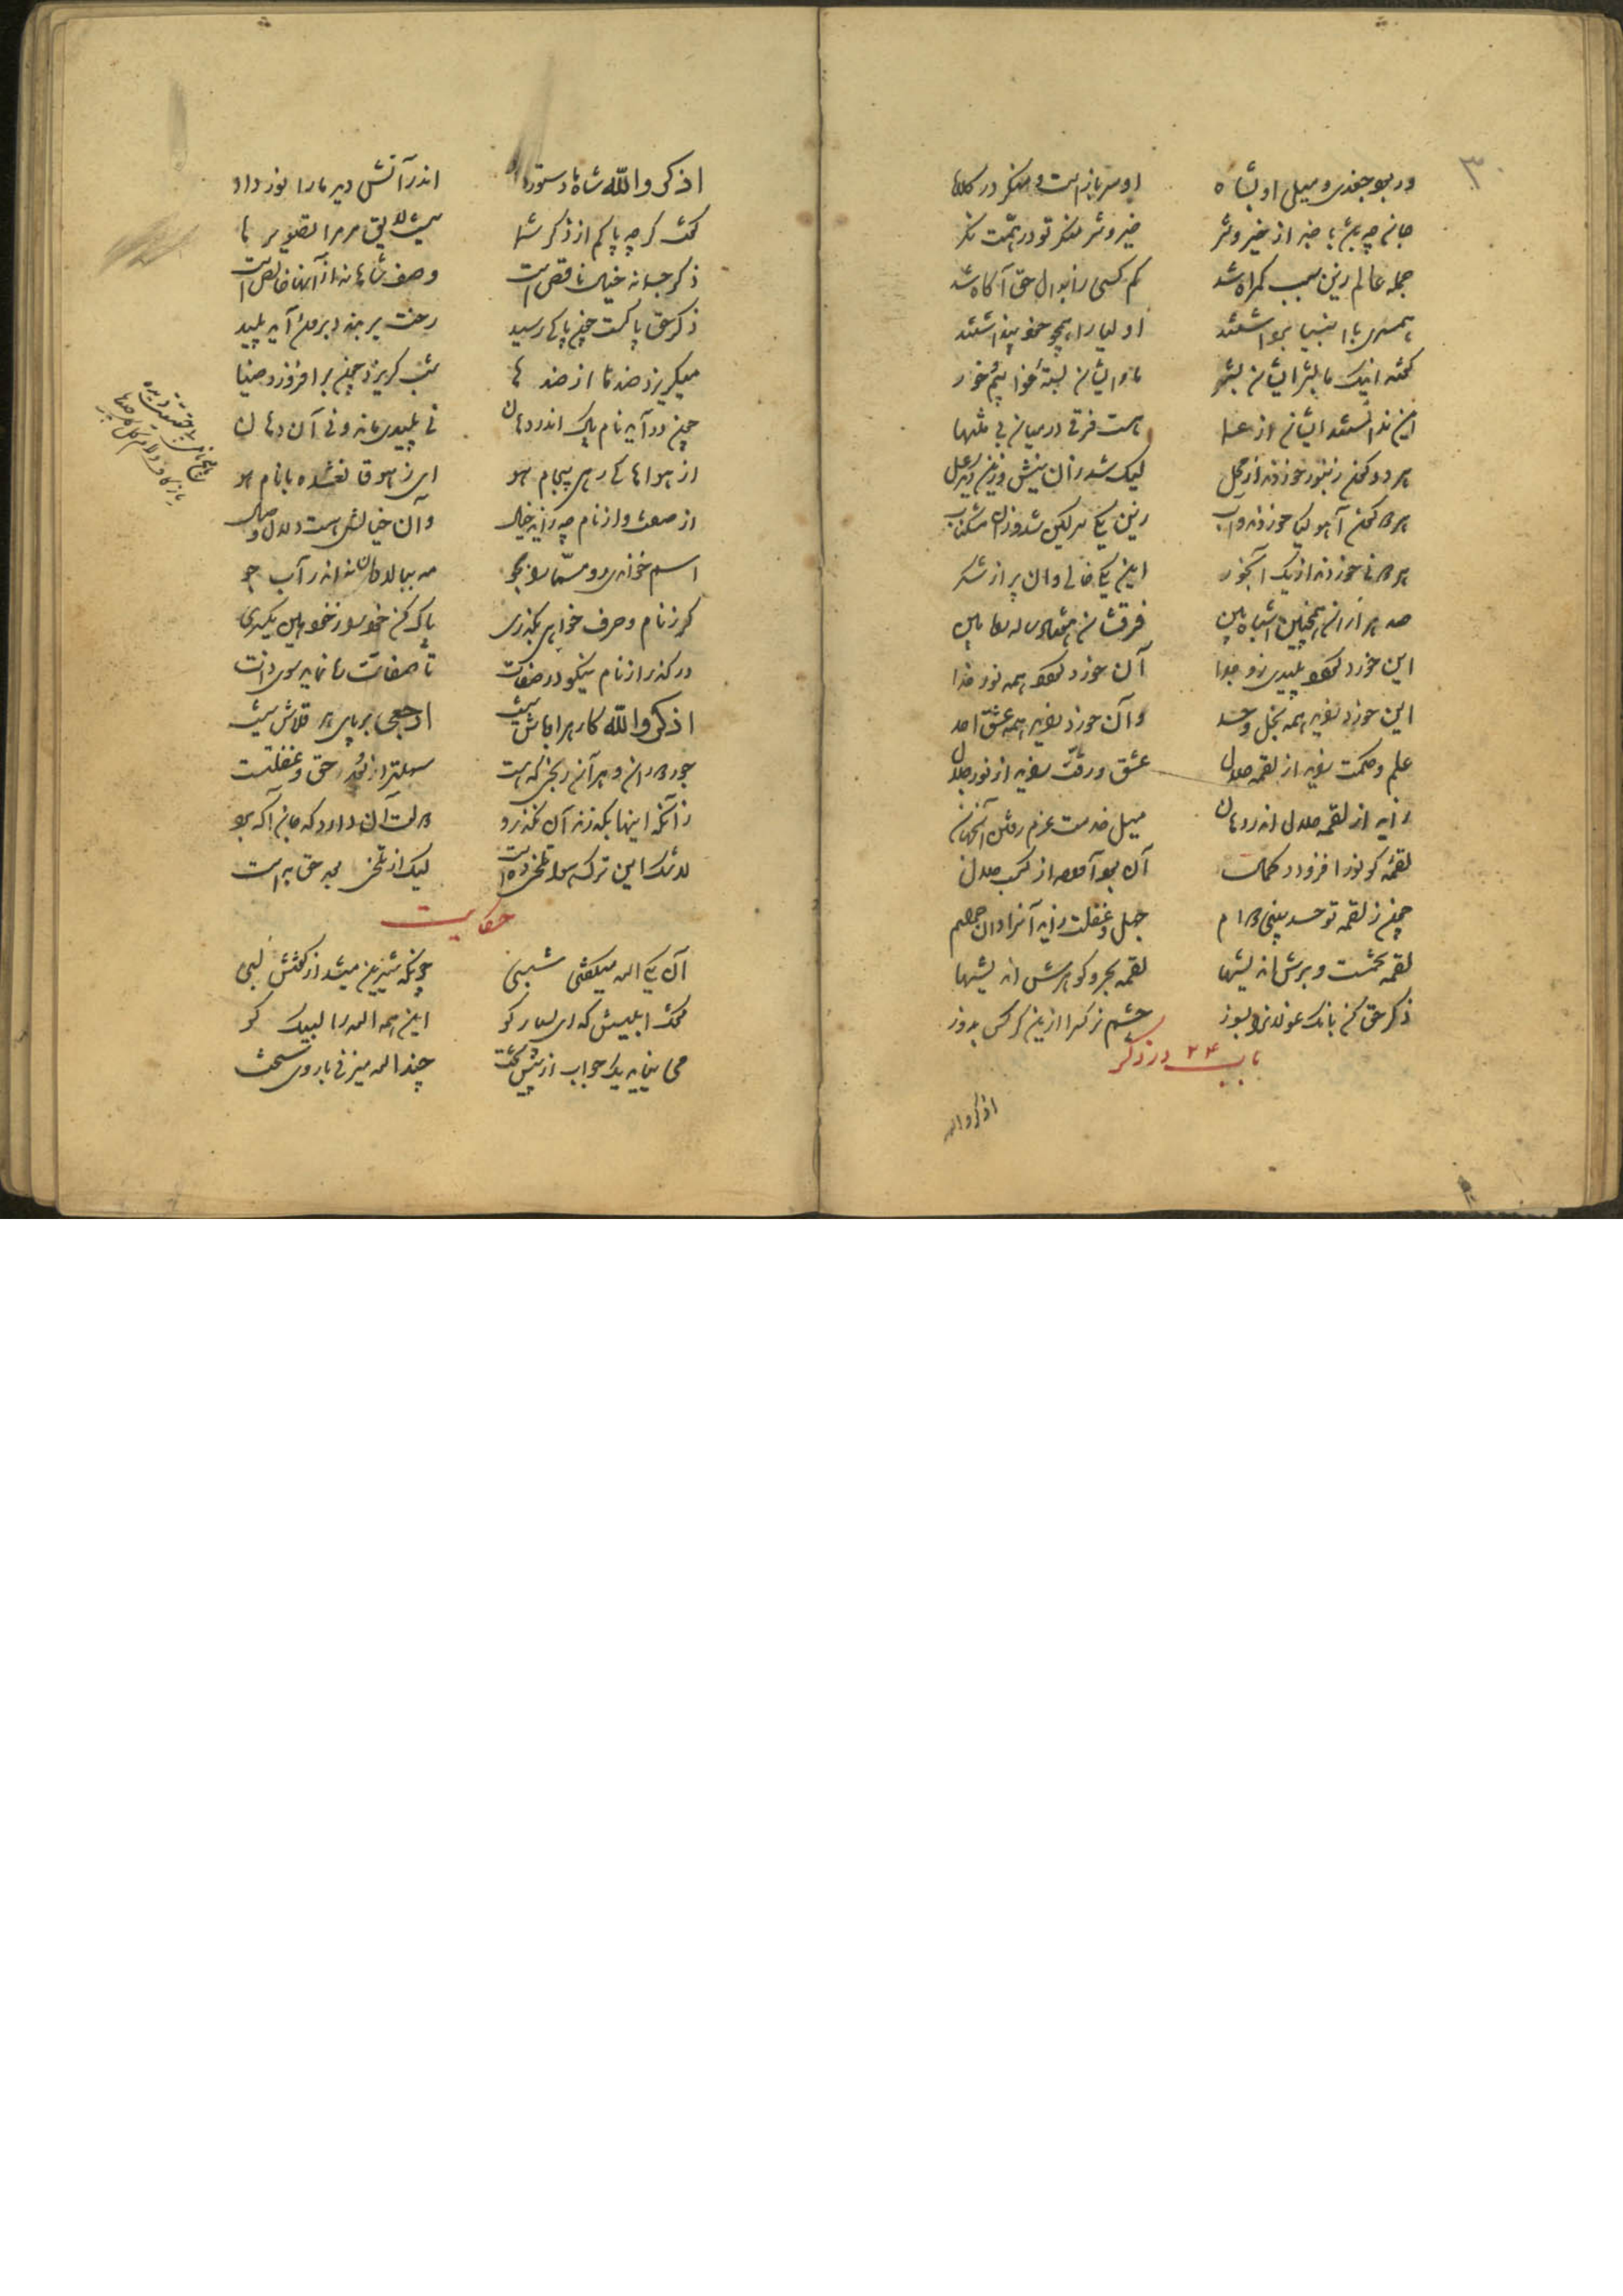 ۳۰
ور بود جغدی و میل او بشاه
او سر بازست و منگر در کلاه
جان چه باشد با خبر از خیر و شر
خیر و شر منگر تو در همت نگر
جمله عالم زین سبب گمراه شد
کم کسی ز ابدال حق آگاه شد
همسری با انبیا برداشتند
اولیا را همچو خود پنداشتند
گفته اینک ما بشر ایشان بشر
ما و ایشان بسته خوابیم و خور
این ندانستند ایشان از عما
هست فرقی در میان بی منتها
هر دو گون زنبور خوردند از محل
لیک شد زان نیش و زین دیگر عسل
هر دو گون آهو گیا خوردند و آب
زین یکی سرگین شد و زان مشکناب
هر دو نی خوردند از یک آبخور
این یکی خالی و آن پر از شکر
صد هزاران همچنین اشباه بین
فرقشان هفتاد ساله راه بین
این خورد گردد پلیدی زو جدا
آن خورد گردد همه نور خدا
این خورد زاید همه بخل و حسد
وآن خورد زاید همه عشق احد
علم و حکمت زاید از لقمه حلال
عشق و رقت زاید از نور جلال
زاید از لقمه حلال اندر دهان
میل خدمت عزم رفتن آنجهان
لقمه کو نور افزود و کمال
آن بود آورده از کسب حلال
چون ز لقمه تو حسد بینی و دام
جهل و غفلت زاید آنرا دان حرام
لقمه تخمست و برش اندیشها
لقمه بحر و گوهرش اندیشها
ذکر حق کن بانگ غولانرا بسوز
چشم نرگس را ازین کرکس بدوز
باب ۲۴ در ذکر
اذکروا الله
اذکروا الله شاه ما دستور داد
اندر آتش دید ما را نور داد
گفت گر چه پاکم از ذکر شما
نیست لایق مر مرا تصویر ها
ذکر جسمانه خیال ناقص است
وصف شاهانه از آنها خالص است
ذکر حق پاکست چون پاکی رسید
رخت بربندد برون آید پلید
میگریزد ضدها از ضد ها
شب گریزد چون بر افروزد ضیا
چون در آید نام پاک اندر دهان
نی پلیدی ماند و نی آن دهان
از هواها کی رهی بیجام هو
ای ز هو قانع شده با نام هو
از صفت وز نام چه زاید خیال
وآن خیالش هست دلال وصال
اسم خواندی رو مسما را بجو
مه ببالا دان نه اندر آب جو
گر ز نام و حرف خواهی بگذری
پاک کن خود را ز خود هین یکسری
در گذر از نام بنگر در صفات
تا صفاتت ره نماید سوی ذات
اذکروا الله کار هر اوباش نیست
ارجعی بر پای هر قلاش نیست
جور دوران و هر آن رنجی که هست
سهلتر از بعد حق و غفلتست
زآنکه اینها بگذرند آن نگذرد
دولت آن دارد که جان آگه برد
لا شک این ترک هوا تلخی ده است
لیک از تلخی بعد حق به است
حکایت
آن یکی الله میگفتی شبی
چونکه شیرین میشد از گفتش لبی
گفت ابلیسش که ای بسیار گو
این همه الله را لبیک کو
می نیاید یک جواب از پیش تخت
چند الله میزنی با روی سخت